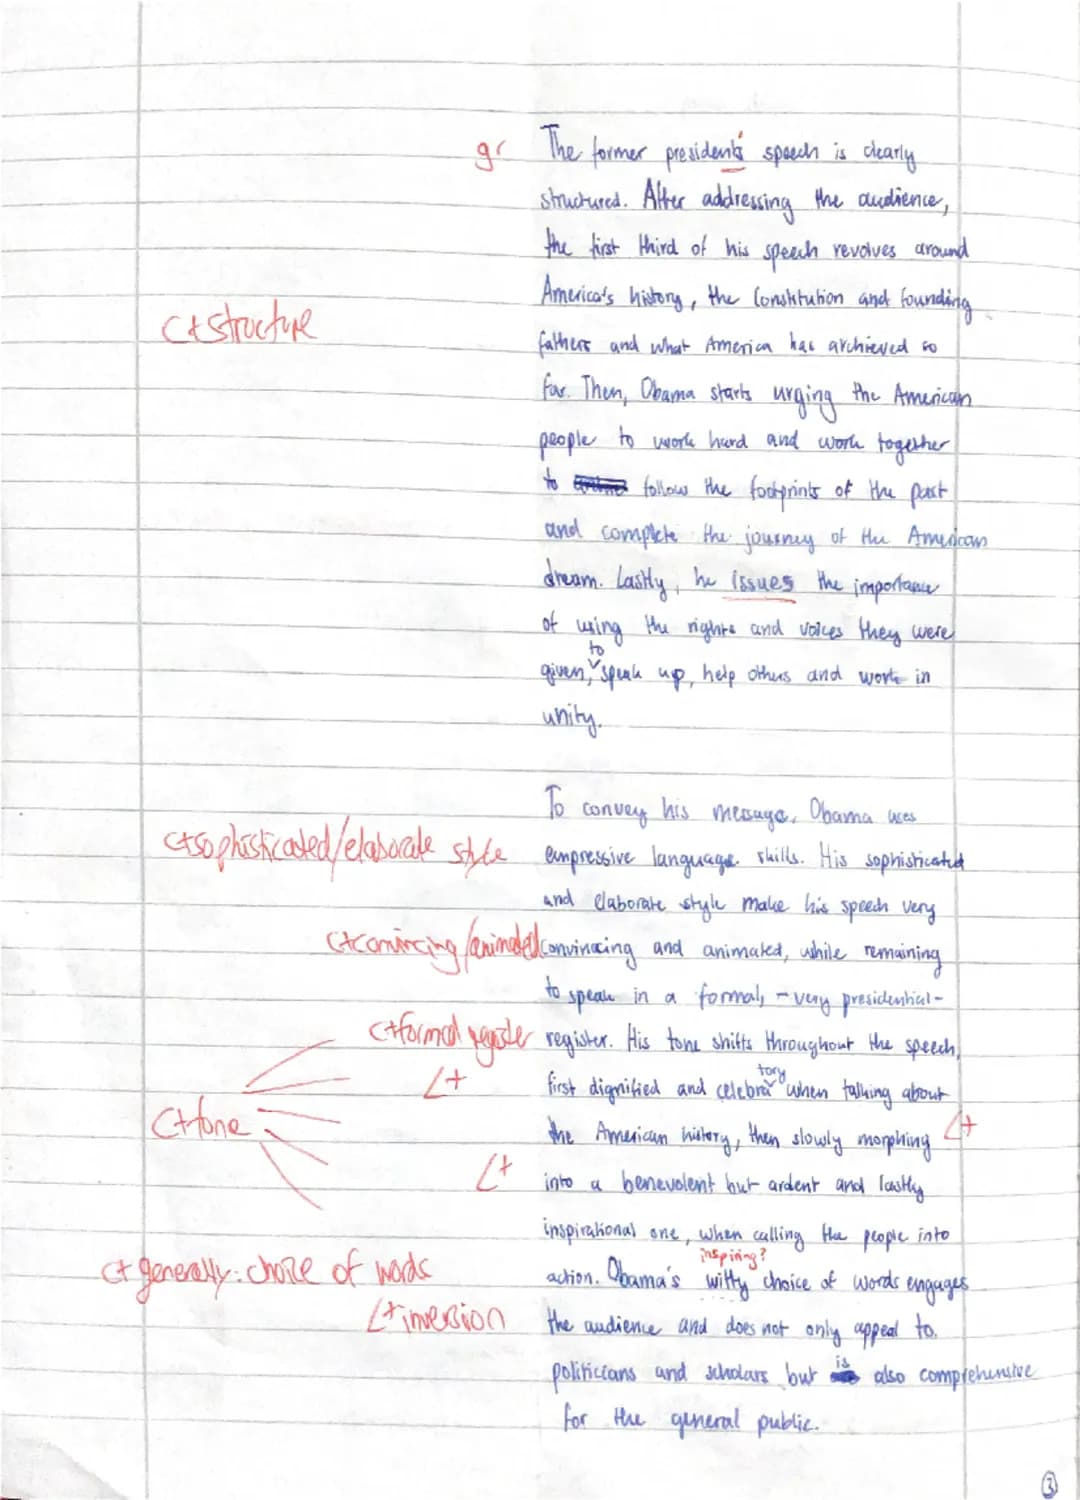 gr The former president's speech is clearly
structured. After addressing the audience,
the first third of his speech revolves around
America's history, the Constitution and founding
C+ structure
fathers and what America has archieved so
far. Then, Obama starts urging the American
people to work hard and work together
to follow the footprints of the past
and complete the journey of the American
dream. Lastly, he issues the importance
of using the rights and voices they were
given, to speak up, help others and work in
unity.
To convey his message, Obama uses
C+ sophisticated/elaborate style empressive language skills. His sophisticated
and elaborate style make his speech very
C+ convincing/animated convinacing and animated, while remaining
to speak in a formal, - very presidential -
C+ formal register register. His tone shifts throughout the speech,
L+ first dignified and celebratory when talking about
C+ tone the American history, then slowly morphing L+
L+ into a benevolent but ardent and lastly
inspirational one, when calling the people into
inspiring?
C+ generally: choice of words action. Obama's witty choice of words engages
L+ inversion the audience and does not only appeal to
politicians and scholars but is also comprehensive
for the general public.
3